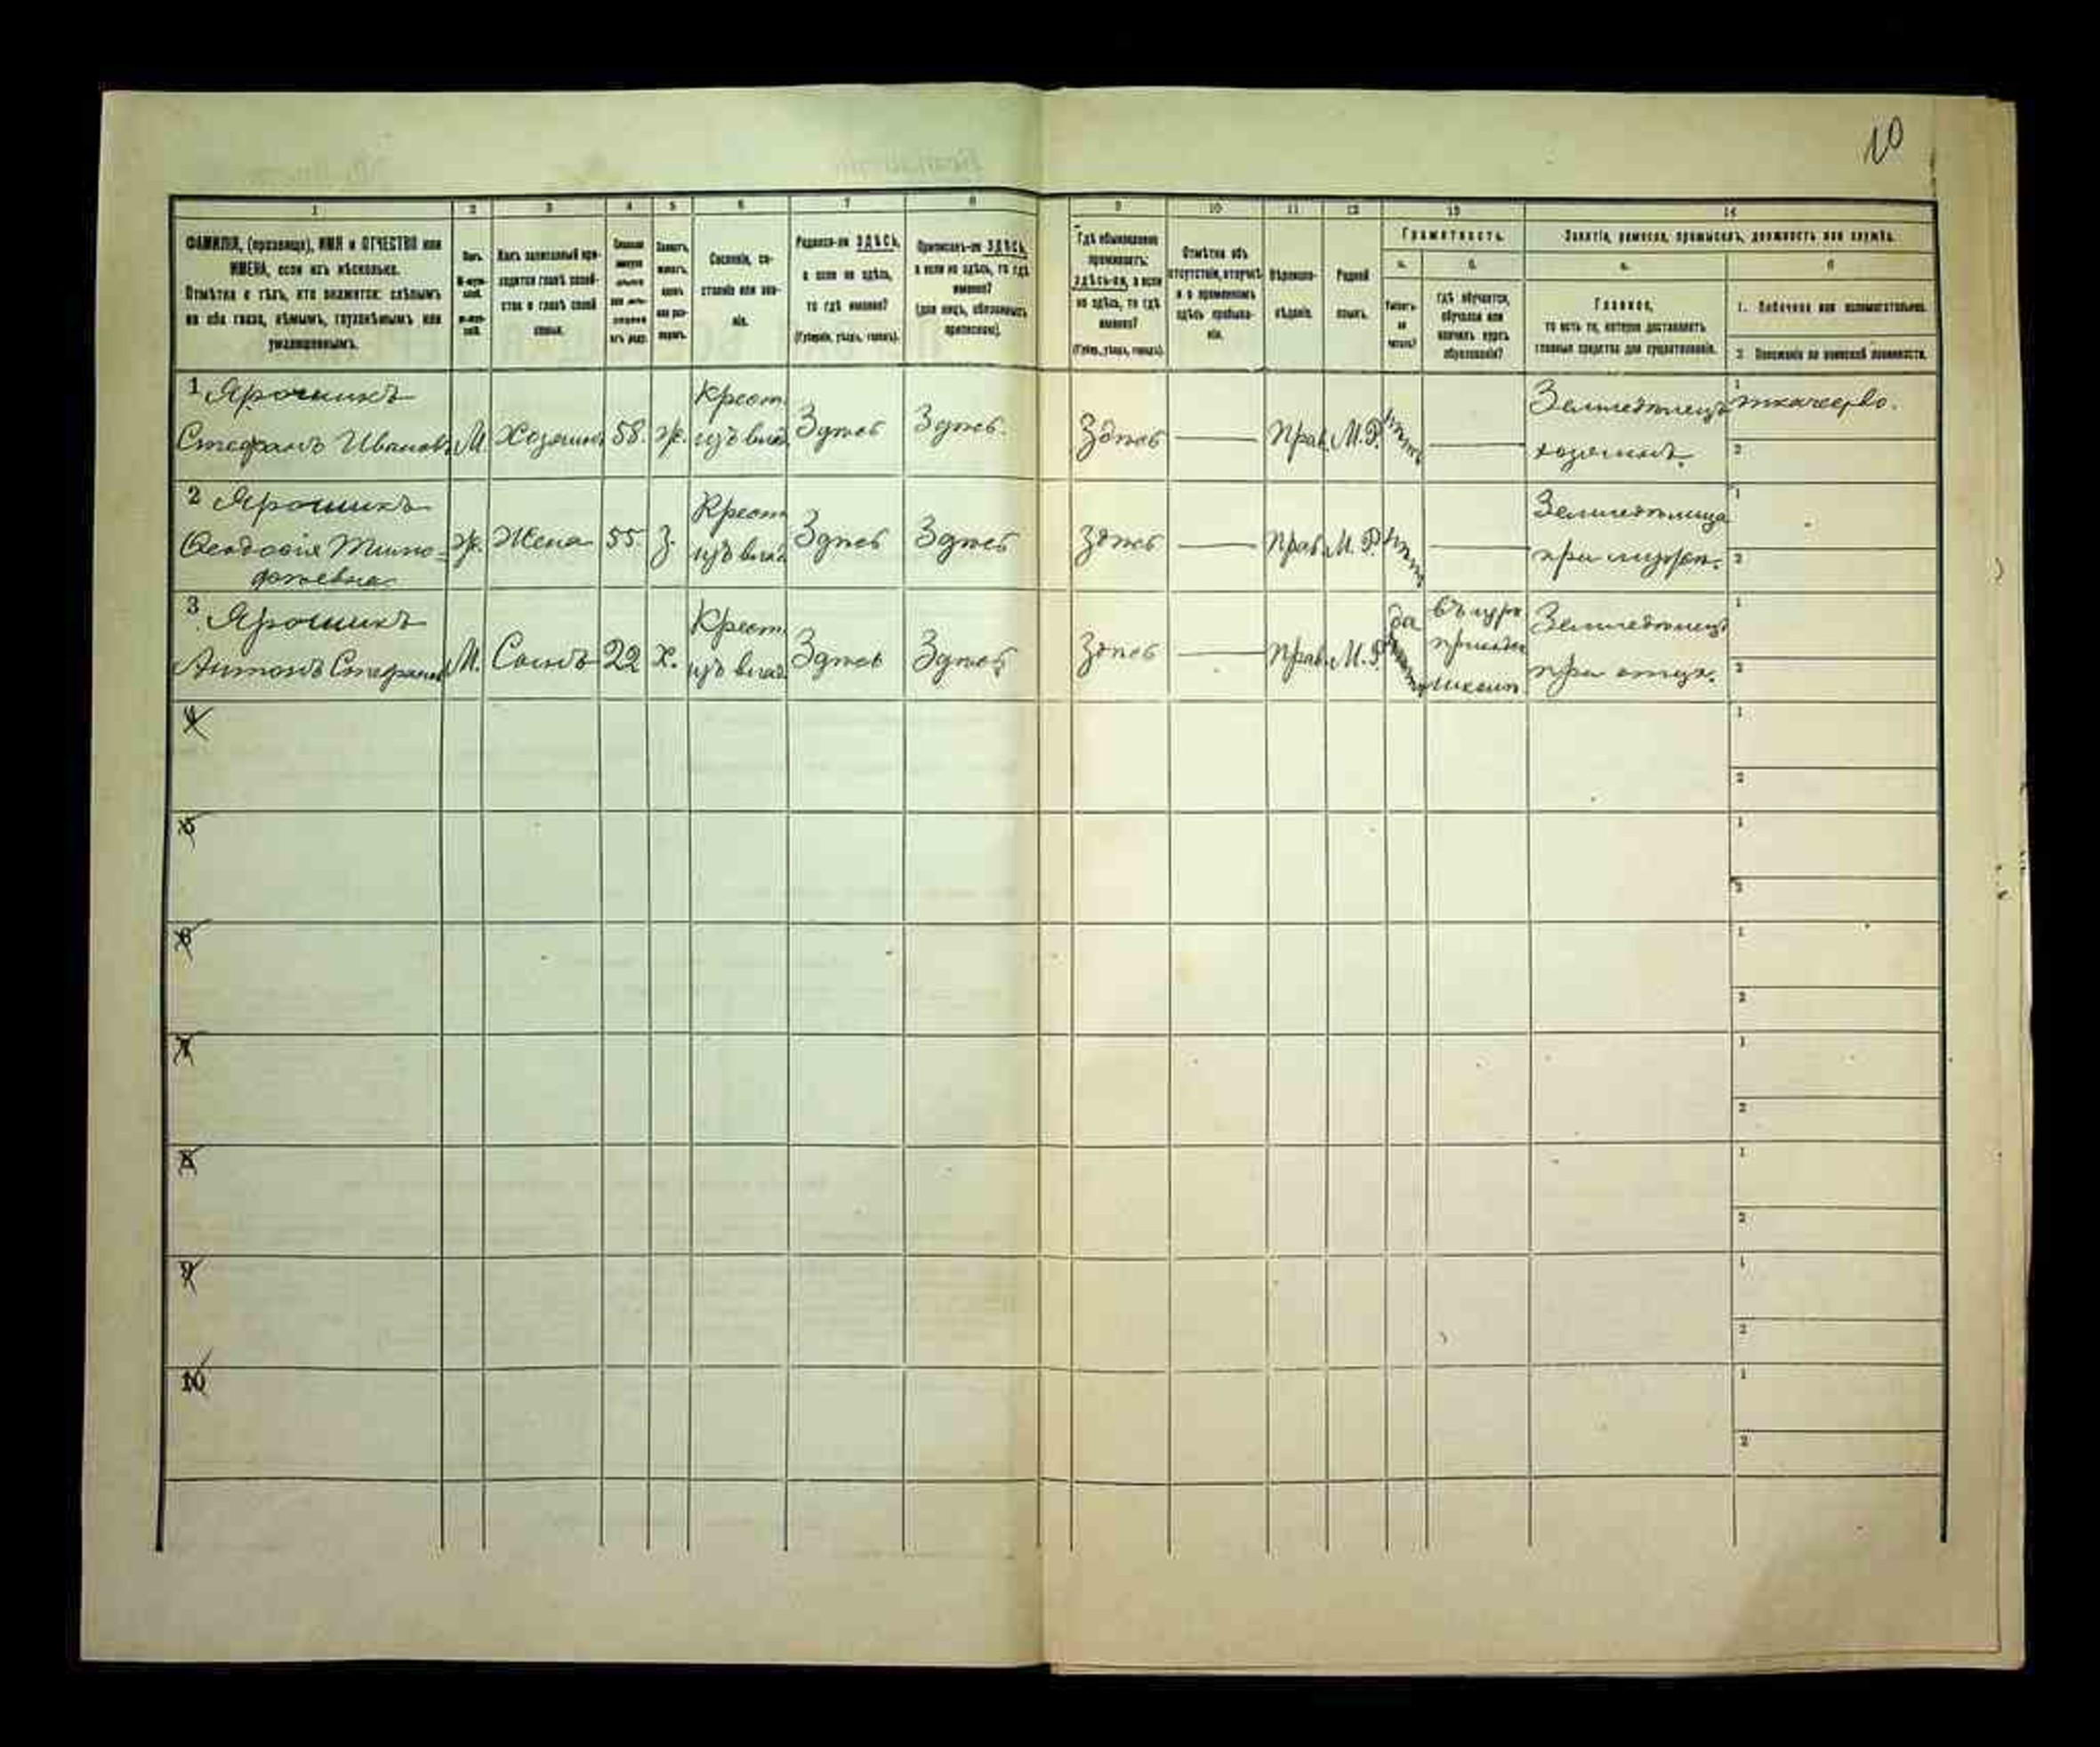 10
1 2 3 4 5 6 7 8 9 10 11 12 13 14
ФАМИЛІЯ, (прозвище), ИМЯ и ОТЧЕСТВО или
ИМЕНА, если ихъ нѣсколько.
Отмѣтка о тѣхъ, кто окажется: слѣпымъ
на оба глаза, нѣмымъ, глухонѣмымъ или
умалишеннымъ.
Полъ.
М-муж-
ской.
Ж-жен-
скій.
Какъ записанный при-
ходится главѣ хозяй-
ства и главѣ своей
семьи.
Сословіе, со-
стояніе или зва-
ніе.
Родился-ли ЗДѢСЬ,
а если не здѣсь,
то гдѣ именно?
(Губернія, уѣздъ, городъ).
Приписанъ-ли ЗДѢСЬ,
а если не здѣсь, то гдѣ
именно?
(для лицъ, обязанныхъ
припискою).
Гдѣ обыкновенно
проживаетъ:
ЗДѢСЬ-ли, а если
не здѣсь, то гдѣ
именно?
(Губ., уѣздъ, городъ).
Отмѣтка объ
отсутствіи, отлучкѣ
и о временномъ
здѣсь пребыва-
ніи.
Вѣроиспо-
вѣданіе.
Родной
языкъ.
Грамотность.
а.
Умѣетъ-
ли
читать?
б.
гдѣ обучается,
обучался или
кончилъ курсъ
образованія?
Занятіе, ремесло, промыселъ, должность или служба.
а.
Главное,
то есть то, которое доставляетъ
главныя средства для существованія.
б
1. Побочное или вспомогательное.
2. Положеніе по воинской повинности.
1 Ярошикъ
Стефанъ Ивановъ М. Хозяинъ 58. ж. Крест. изъ влад. Здѣсь Здѣсь. Здѣсь Прав. М.Р. Земледѣлецъ хозяинъ. 1 ткачество. 2
2 Ярошикъ
Ѳеодосія Тимо-
фѣевна ж. Жена 55 З. Крест. изъ влад. Здѣсь Здѣсь Здѣсь Прав. М.Р. Земледѣлица при мужѣ. 1 2
3 Ярошикъ
Антонъ Стефановъ М. Сынъ 22 х. Крест. изъ влад. Здѣсь Здѣсь Здѣсь Прав. М.Р. да Земледѣлецъ при отцѣ. 1 2
4 1 2
5 1 2
6 1 2
7 1 2
8 1 2
9 1 2
10 1 2